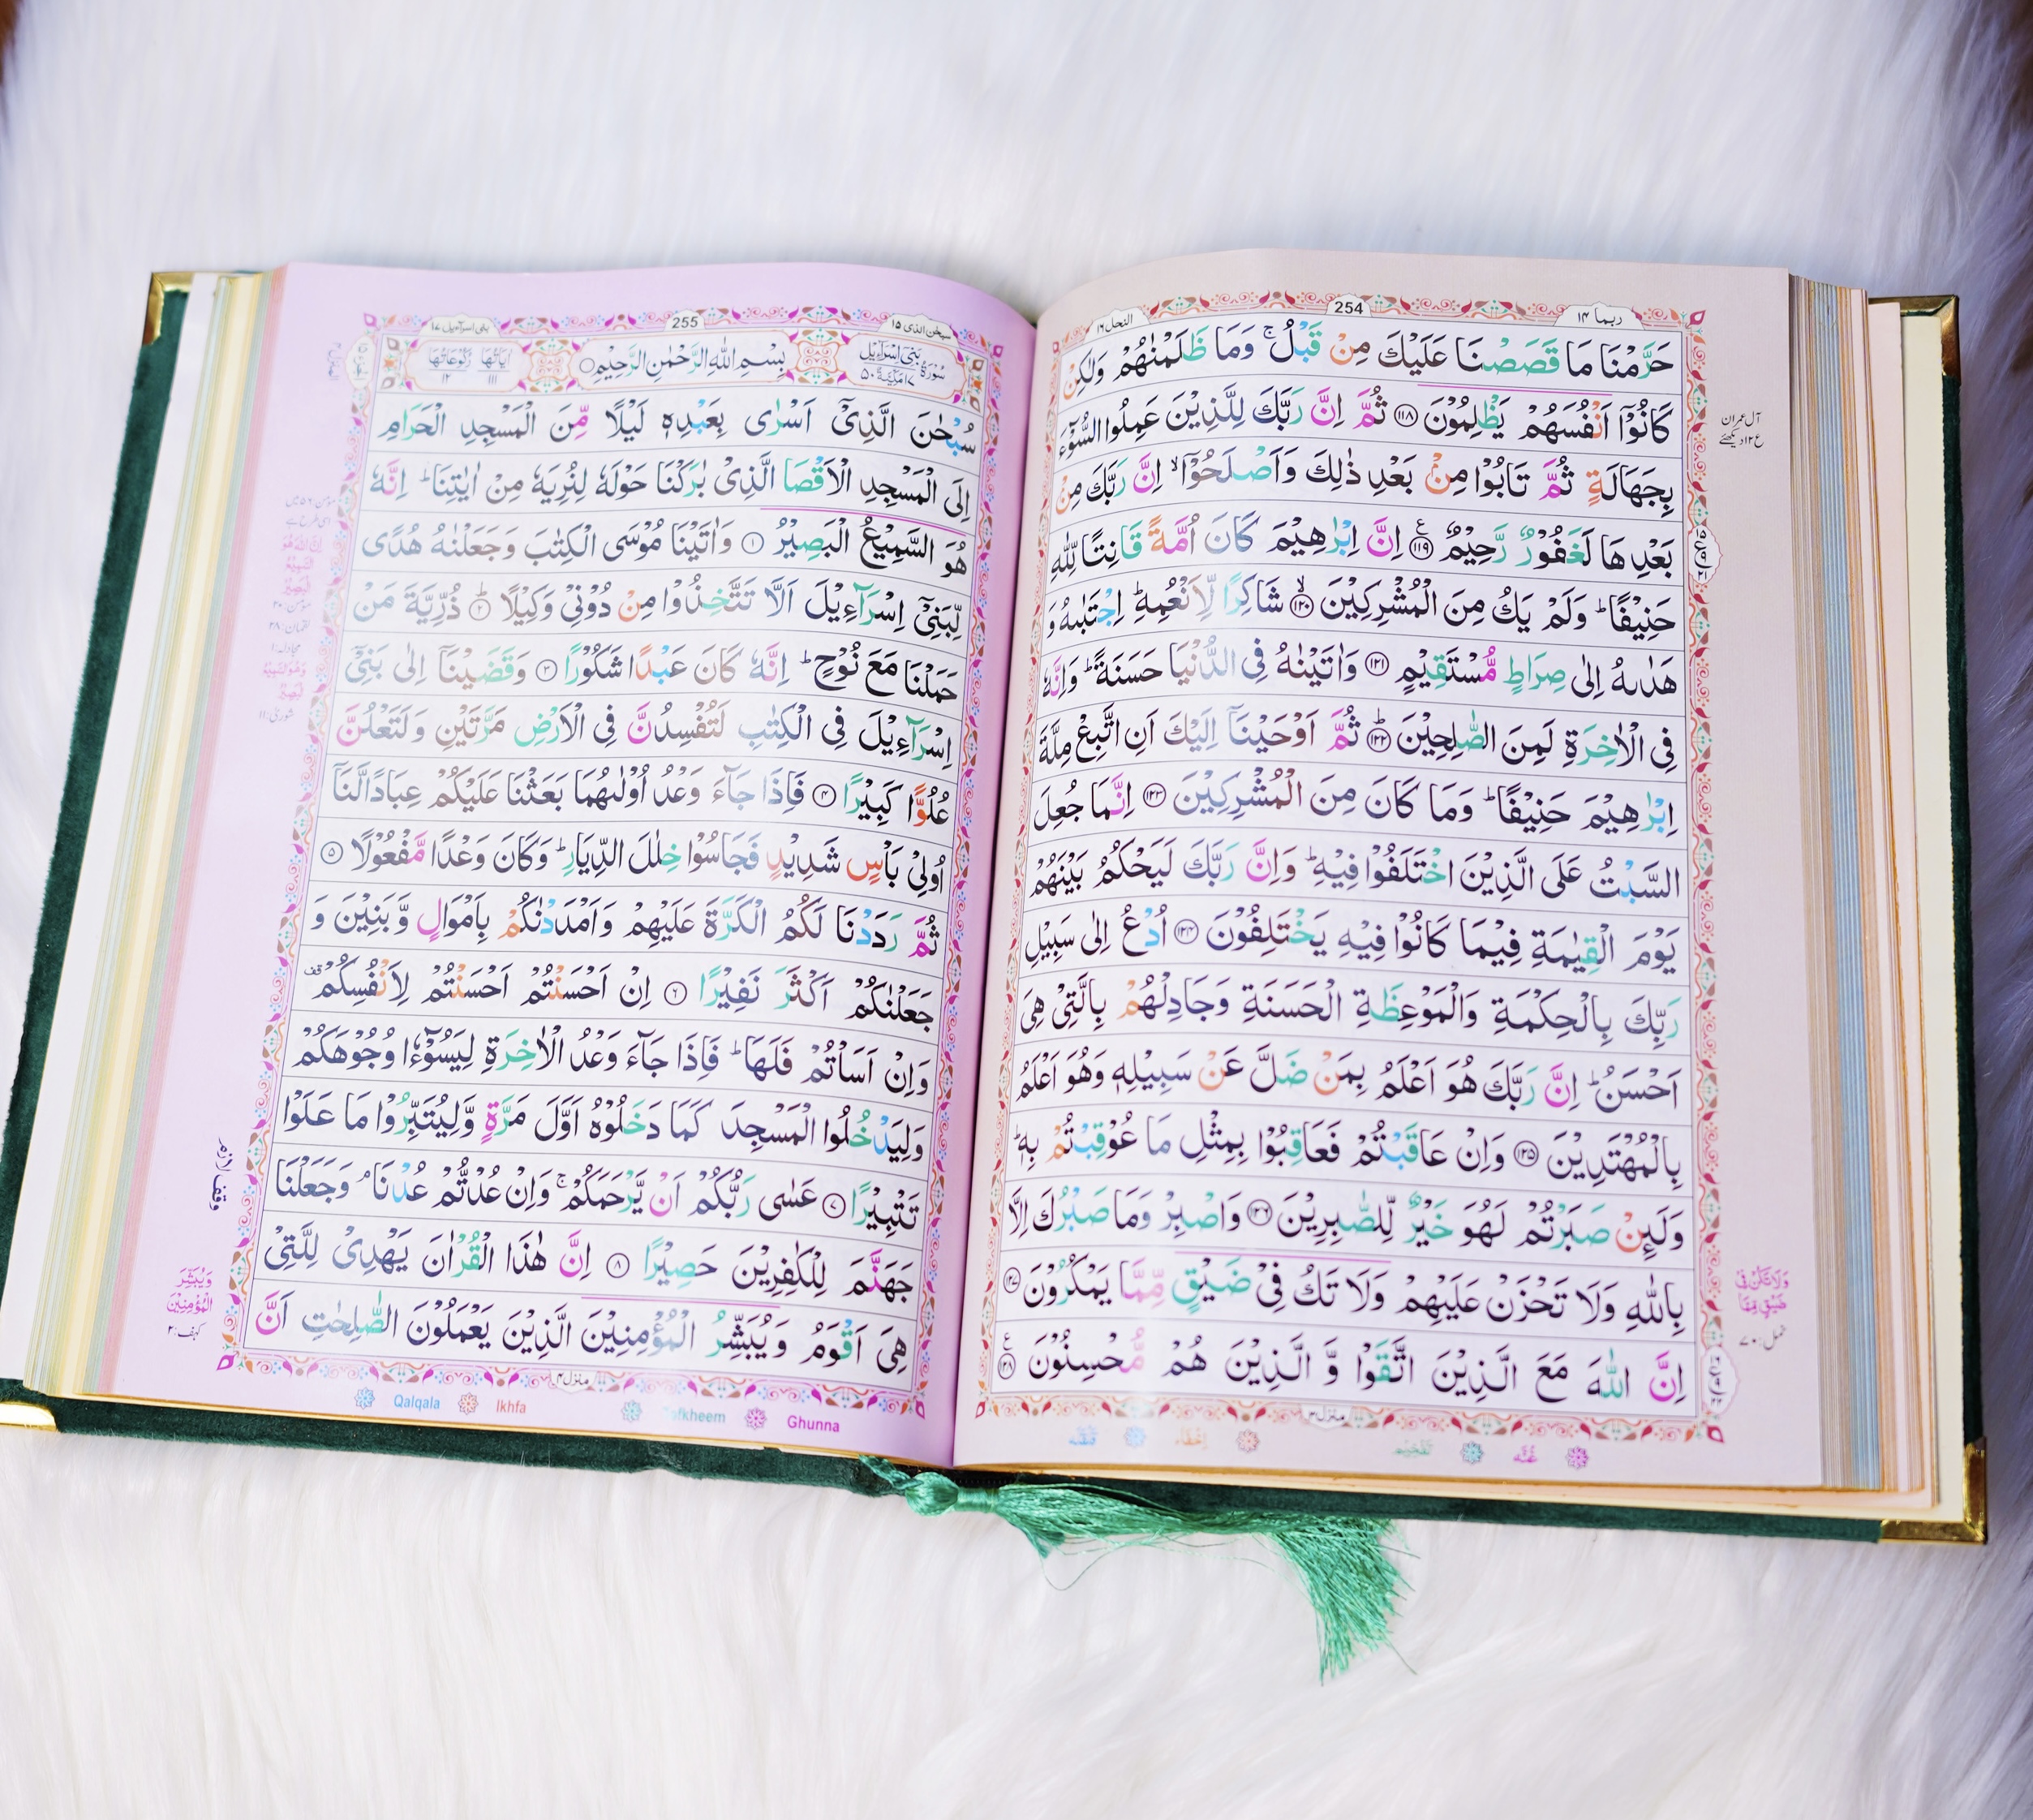 ربما ١٤
254
النحل ١٦
حَرَّمْنَا مَا قَصَصْنَا عَلَيْكَ مِنْ قَبْلُ ۚ وَمَا ظَلَمْنٰهُمْ وَلٰكِنْ
كَانُوْٓا اَنْفُسَهُمْ يَظْلِمُوْنَ ١١٨ ثُمَّ اِنَّ رَبَّكَ لِلَّذِيْنَ عَمِلُوا السُّوْٓءَ
بِجَهَالَةٍ ثُمَّ تَابُوْا مِنْۢ بَعْدِ ذٰلِكَ وَاَصْلَحُوْٓا ۙ اِنَّ رَبَّكَ مِنْۢ
بَعْدِهَا لَغَفُوْرٌ رَّحِيْمٌ ١١٩ اِنَّ اِبْرٰهِيْمَ كَانَ اُمَّةً قَانِتًا لِّلّٰهِ
حَنِيْفًا ؕ وَلَمْ يَكُ مِنَ الْمُشْرِكِيْنَ ١٢٠ شَاكِرًا لِّاَنْعُمِهٖ ؕ اِجْتَبٰىهُ وَ
هَدٰىهُ اِلٰى صِرَاطٍ مُّسْتَقِيْمٍ ١٢١ وَاٰتَيْنٰهُ فِى الدُّنْيَا حَسَنَةً ؕ وَاِنَّهٗ
فِى الْاٰخِرَةِ لَمِنَ الصّٰلِحِيْنَ ١٢٢ ثُمَّ اَوْحَيْنَآ اِلَيْكَ اَنِ اتَّبِعْ مِلَّةَ
اِبْرٰهِيْمَ حَنِيْفًا ؕ وَمَا كَانَ مِنَ الْمُشْرِكِيْنَ ١٢٣ اِنَّمَا جُعِلَ
السَّبْتُ عَلَى الَّذِيْنَ اخْتَلَفُوْا فِيْهِ ؕ وَاِنَّ رَبَّكَ لَيَحْكُمُ بَيْنَهُمْ
يَوْمَ الْقِيٰمَةِ فِيْمَا كَانُوْا فِيْهِ يَخْتَلِفُوْنَ ١٢٤ اُدْعُ اِلٰى سَبِيْلِ
رَبِّكَ بِالْحِكْمَةِ وَالْمَوْعِظَةِ الْحَسَنَةِ وَجَادِلْهُمْ بِالَّتِىْ هِىَ
اَحْسَنُ ؕ اِنَّ رَبَّكَ هُوَ اَعْلَمُ بِمَنْ ضَلَّ عَنْ سَبِيْلِهٖ وَهُوَ اَعْلَمُ
بِالْمُهْتَدِيْنَ ١٢٥ وَاِنْ عَاقَبْتُمْ فَعَاقِبُوْا بِمِثْلِ مَا عُوْقِبْتُمْ بِهٖ ؕ
وَلَئِنْ صَبَرْتُمْ لَهُوَ خَيْرٌ لِّلصّٰبِرِيْنَ ١٢٦ وَاصْبِرْ وَمَا صَبْرُكَ اِلَّا
بِاللّٰهِ وَلَا تَحْزَنْ عَلَيْهِمْ وَلَا تَكُ فِىْ ضَيْقٍ مِّمَّا يَمْكُرُوْنَ ١٢٧
اِنَّ اللّٰهَ مَعَ الَّذِيْنَ اتَّقَوْا وَّ الَّذِيْنَ هُمْ مُّحْسِنُوْنَ ١٢٨
منزل ٣
غُنَّه
تَفْخِيْم
اِخْفَاء
قَلْقَلَه
وَلَا تَكُنْ فِىْ
ضَيْقٍ مِّمَّا
نمل: ٧٠
سبحن الذى ١٥
255
بنى اسرآءيل ١٧
بِسْمِ اللّٰهِ الرَّحْمٰنِ الرَّحِيْمِ
اٰيَاتُهَا ١١١
رُكُوْعَاتُهَا ١٢
سُبْحٰنَ الَّذِىْٓ اَسْرٰى بِعَبْدِهٖ لَيْلًا مِّنَ الْمَسْجِدِ الْحَرَامِ
اِلَى الْمَسْجِدِ الْاَقْصَا الَّذِىْ بٰرَكْنَا حَوْلَهٗ لِنُرِيَهٗ مِنْ اٰيٰتِنَا ؕ اِنَّهٗ
هُوَ السَّمِيْعُ الْبَصِيْرُ ١ وَاٰتَيْنَا مُوْسَى الْكِتٰبَ وَجَعَلْنٰهُ هُدًى
لِّبَنِىْٓ اِسْرَآءِيْلَ اَلَّا تَتَّخِذُوْا مِنْ دُوْنِىْ وَكِيْلًا ٢ ذُرِّيَّةَ مَنْ
حَمَلْنَا مَعَ نُوْحٍ ؕ اِنَّهٗ كَانَ عَبْدًا شَكُوْرًا ٣ وَقَضَيْنَآ اِلٰى بَنِىْٓ
اِسْرَآءِيْلَ فِى الْكِتٰبِ لَتُفْسِدُنَّ فِى الْاَرْضِ مَرَّتَيْنِ وَلَتَعْلُنَّ
عُلُوًّا كَبِيْرًا ٤ فَاِذَا جَآءَ وَعْدُ اُوْلٰىهُمَا بَعَثْنَا عَلَيْكُمْ عِبَادًا لَّنَآ
اُولِىْ بَاْسٍ شَدِيْدٍ فَجَاسُوْا خِلٰلَ الدِّيَارِ ؕ وَكَانَ وَعْدًا مَّفْعُوْلًا ٥
ثُمَّ رَدَدْنَا لَكُمُ الْكَرَّةَ عَلَيْهِمْ وَاَمْدَدْنٰكُمْ بِاَمْوَالٍ وَّبَنِيْنَ وَ
جَعَلْنٰكُمْ اَكْثَرَ نَفِيْرًا ٦ اِنْ اَحْسَنْتُمْ اَحْسَنْتُمْ لِاَنْفُسِكُمْ قف
وَاِنْ اَسَاْتُمْ فَلَهَا ؕ فَاِذَا جَآءَ وَعْدُ الْاٰخِرَةِ لِيَسُوْٓءٗا وُجُوْهَكُمْ
وَلِيَدْخُلُوا الْمَسْجِدَ كَمَا دَخَلُوْهُ اَوَّلَ مَرَّةٍ وَّلِيُتَبِّرُوْا مَا عَلَوْا
تَتْبِيْرًا ٧ عَسٰى رَبُّكُمْ اَنْ يَّرْحَمَكُمْ ۚ وَاِنْ عُدْتُّمْ عُدْنَا ۘ وَجَعَلْنَا
جَهَنَّمَ لِلْكٰفِرِيْنَ حَصِيْرًا ٨ اِنَّ هٰذَا الْقُرْاٰنَ يَهْدِىْ لِلَّتِىْ
هِىَ اَقْوَمُ وَيُبَشِّرُ الْمُؤْمِنِيْنَ الَّذِيْنَ يَعْمَلُوْنَ الصّٰلِحٰتِ اَنَّ
منزل ٤
وقف لازم
وَيُبَشِّرَ
الْمُؤْمِنِيْنَ
كهف: ٢
Qalqala Ikhfa Tafkheem Ghunna